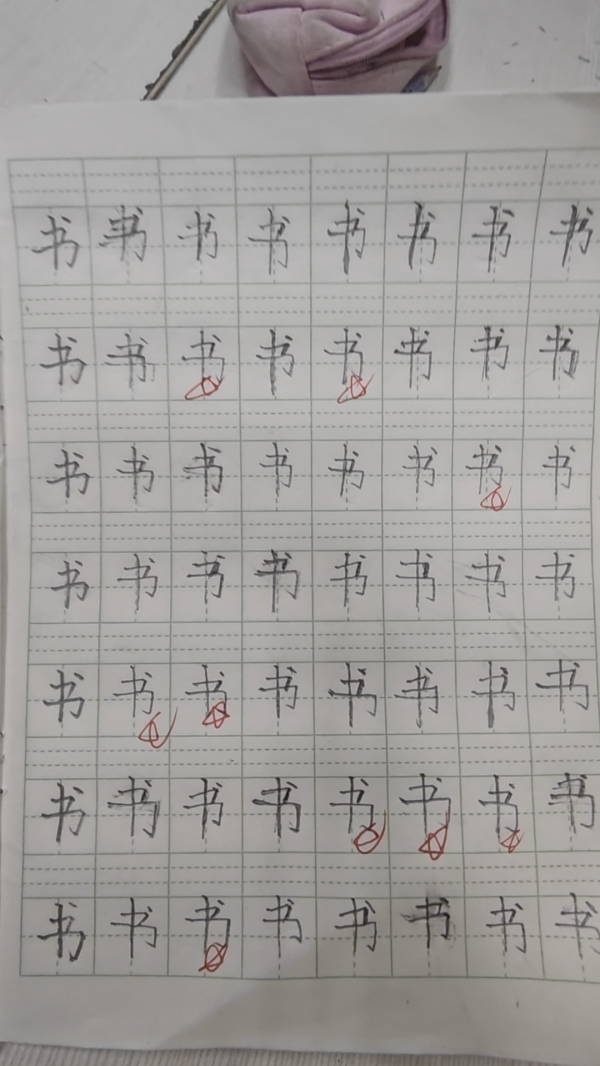 书 书 书 书 书 书 书 书
书 书 书 书 书 书 书 书
书 书 书 书 书 书 书 书
书 书 书 书 书 书 书 书
书 书 书 书 书 书 书 书
书 书 书 书 书 书 书 书
书 书 书 书 书 书 书 书